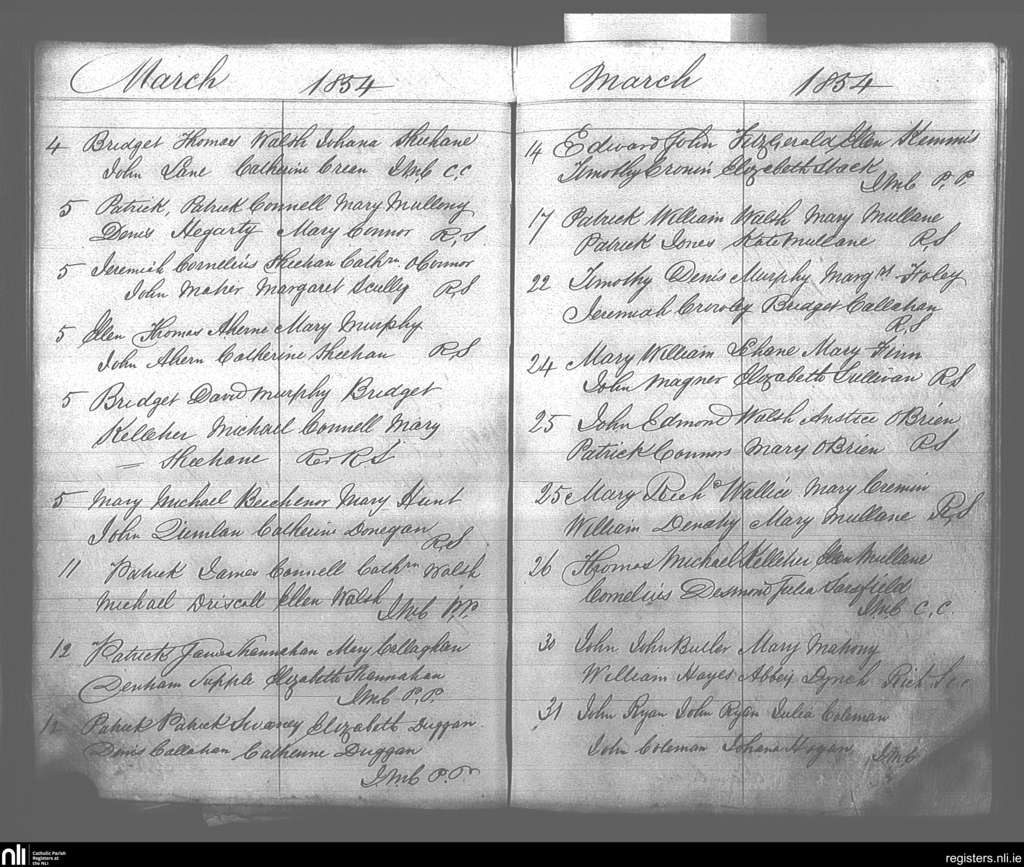 March 1854
4 Bridget Thomas Walsh Johana Sheehane
John Lane Catherine Creen J.McC C.C
5 Patrick, Patrick Connell Mary Mullony
Denis Hegarty Mary Connor R,S
5 Jeremiah Cornelius Sheehan Cathrn OConnor
John Maher Margaret Scully R,S
5 Ellen Thomas Aherne Mary Murphy
John Ahern Catherine Sheehan R,S
5 Bridget David Murphy Bridget
Kelleher Michael Connell Mary
— Sheehane Rev R S
5 Mary Michael Mary Hunt
John Quinlan Catherine Donegan R,S
11 Patrick James Connell Cathrn Walsh
Michael Driscoll Ellen Walsh J.McC P.P.
12 Patrick James Hannahan Mary Callaghan
Denham Supple Elizabeth Hannahan
J.McC P.P.
12 Patrick Patrick Sweeney Elizabeth Duggan
Denis Callahan Catherine Duggan
J.McC P.P
March 1854
14 Edward John FitzGerald Ellen Kemmis
Timothy Cronin Elizabeth Stack
J.McC P.P.
17 Patrick William Walsh Mary Mullane
Patrick Jones Kate Mullane RS
22 Timothy Denis Murphy Margrt Foley
Jeremiah Crowley Bridget Callahan
R,S
24 Mary William Lehane Mary Finn
John Magner Elizabeth Sullivan RS
25 John Edmond Walsh Anstice OBrien
Patrick Connors Mary OBrien RS
25 Mary Richd Wallice Mary Cremin
William Denahy Mary Mullane R,S
26 Thomas Michael Kelleher Ellen Mullane
Cornelius Desmond Julia Sarsfield
J.McC C.C.
30 John John Butler Mary Mahony
William Hayes Abbey Lynch Rich
31 John Ryan John Ryan Julia Coleman
John Coleman Johana Hogan J.McC
nli Catholic Parish
Registers at
the NLI
registers.nli.ie